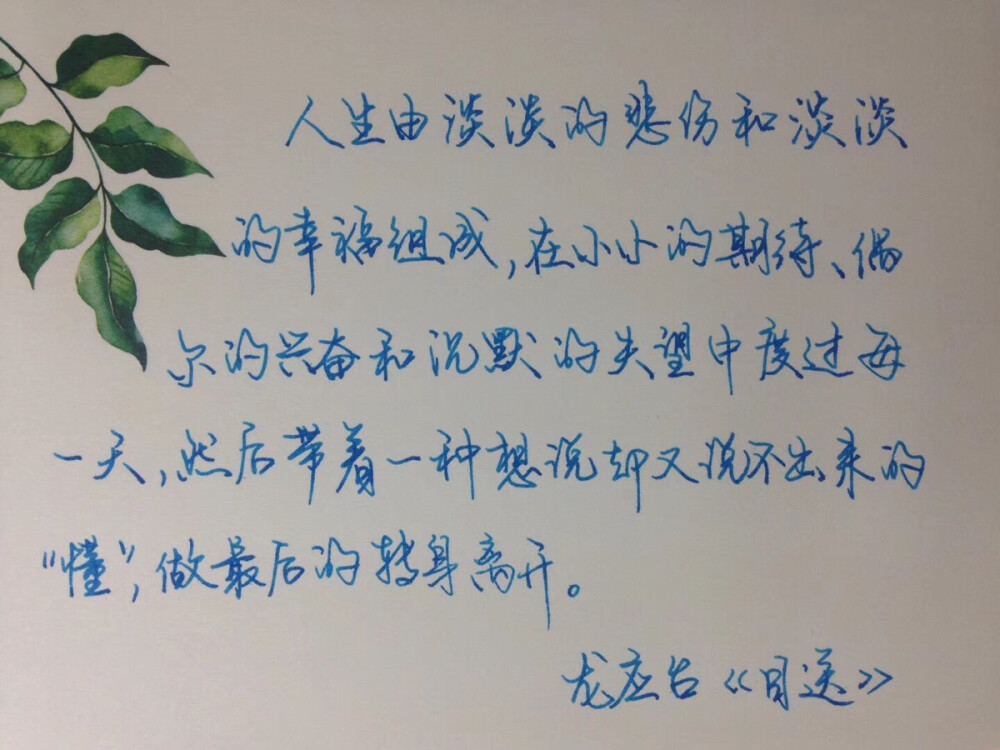 人生由淡淡的悲伤和淡淡
的幸福组成,在小小的期待、偶
尔的兴奋和沉默的失望中度过每
一天,然后带着一种想说却又说不出来的
“懂”,做最后的转身离开。
龙应台《目送》